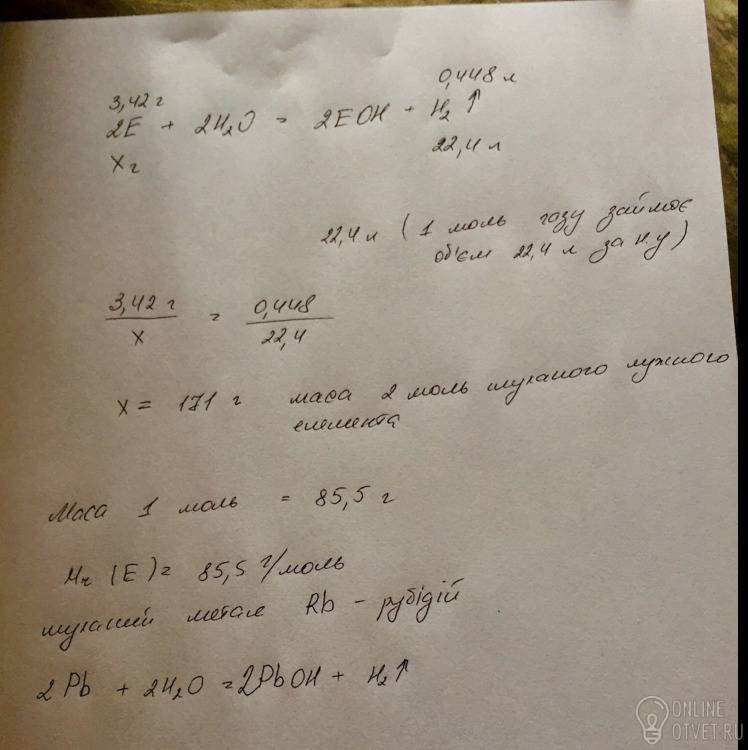 0,448 л
3,42 г
2E + 2H₂O = 2EOH + H₂ ↑
X г
22,4 л
22,4 л ( 1 моль газу займає
об'єм 22,4 л за н.у)
3,42 г / X = 0,448 / 22,4
X = 171 г маса 2 моль шуканого лужного
елемента
Маса 1 моль = 85,5 г
Mr (E) = 85,5 г/моль
шуканий метал Rb - рубідій
2 Pb + 2H₂O = 2PbOH + H₂↑
ONLINE
OTVET.RU